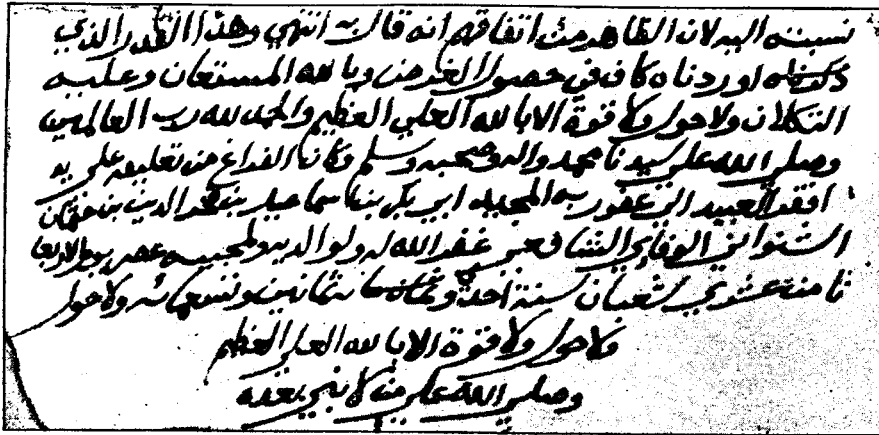 نسبته اليه لان الظاهر من اتفاقهم انه قال به انتهى وهذا القدر الذي
اوردناه كاف في حصول الغرض وبالله المستعان وعليه
التكلان ولا حول ولا قوة الا بالله العلي العظيم والحمد لله رب العالمين
وصلي الله علي سيدنا محمد واله وصحبه وسلم وكان الفراغ من تعليقه علي يد
افقر العبيد الي عفو ربه المجيد ابي بكر بن اسماعيل بن الدين بن عثمان
الشنواني الوفائي الشافعي غفر الله له ولوالديه ولمحبيه عصر يوم الاربعا
ثامن عشري شعبان سنة احدى وثمانين وتسعمائه ولا حول
ولا حول ولا قوة الا بالله العلي العظيم
وصلي الله علي من لا نبي بعده